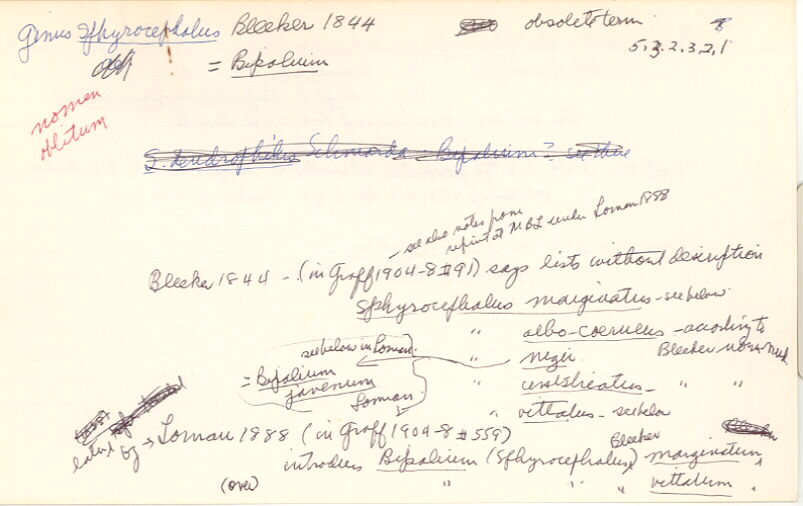 Genus Sphyrocephalus Bleeker 1844 obsolete term 8
= Bipalium 5.3.2.3.2.1
nomen
oblitum
S. dendrophilus Schmarda - Bipalium? see thue
- see also notes from
reprint at MBL under Loman 1888
Bleeker 1844 - (in Graff 1904-8 #91) says lists without description
Sphyrocephalus marginatus - see below
" albo-coeruleus - according to
see below in Loman " niger Bleeker nov.
= Bipalium " - " "
javenum
Loman " vittatus - see below
later by → Loman 1888 (in Graff 1904-8 #559) Bleeker
introduces Bipalium (Sphyrocephalus) marginatum,
(over) " " " vittatum